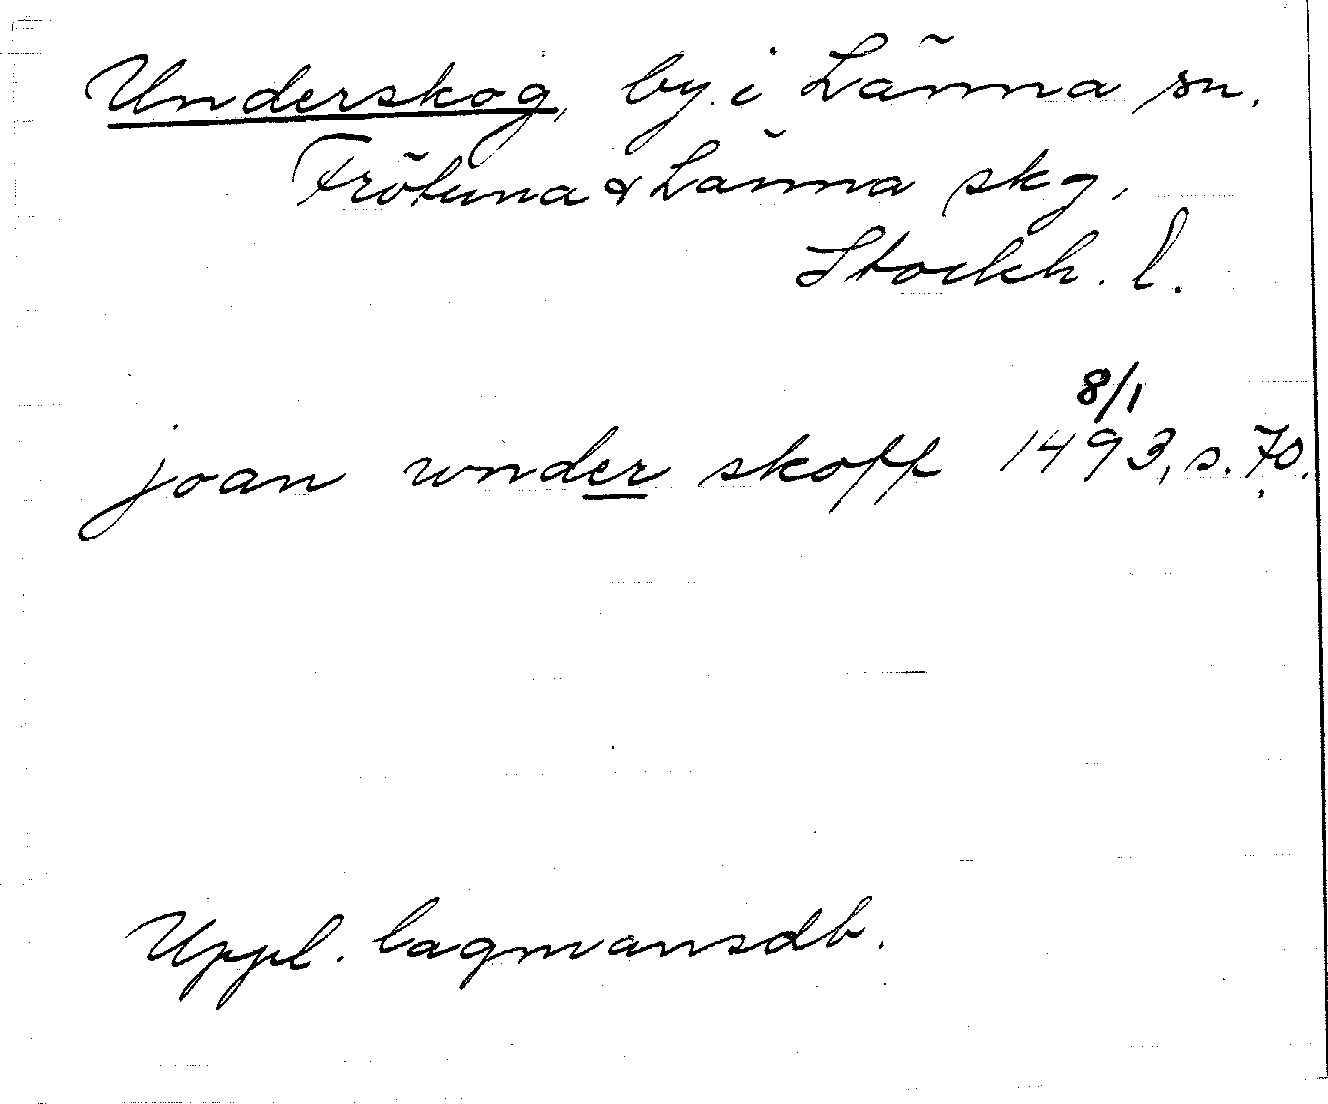 Underskog, by i Länna sn.
Frötuna & Länna skg,
Stockh. l.
8/1
joan wnder skoff 1493, s. 70.
Uppl. lagmansdb.